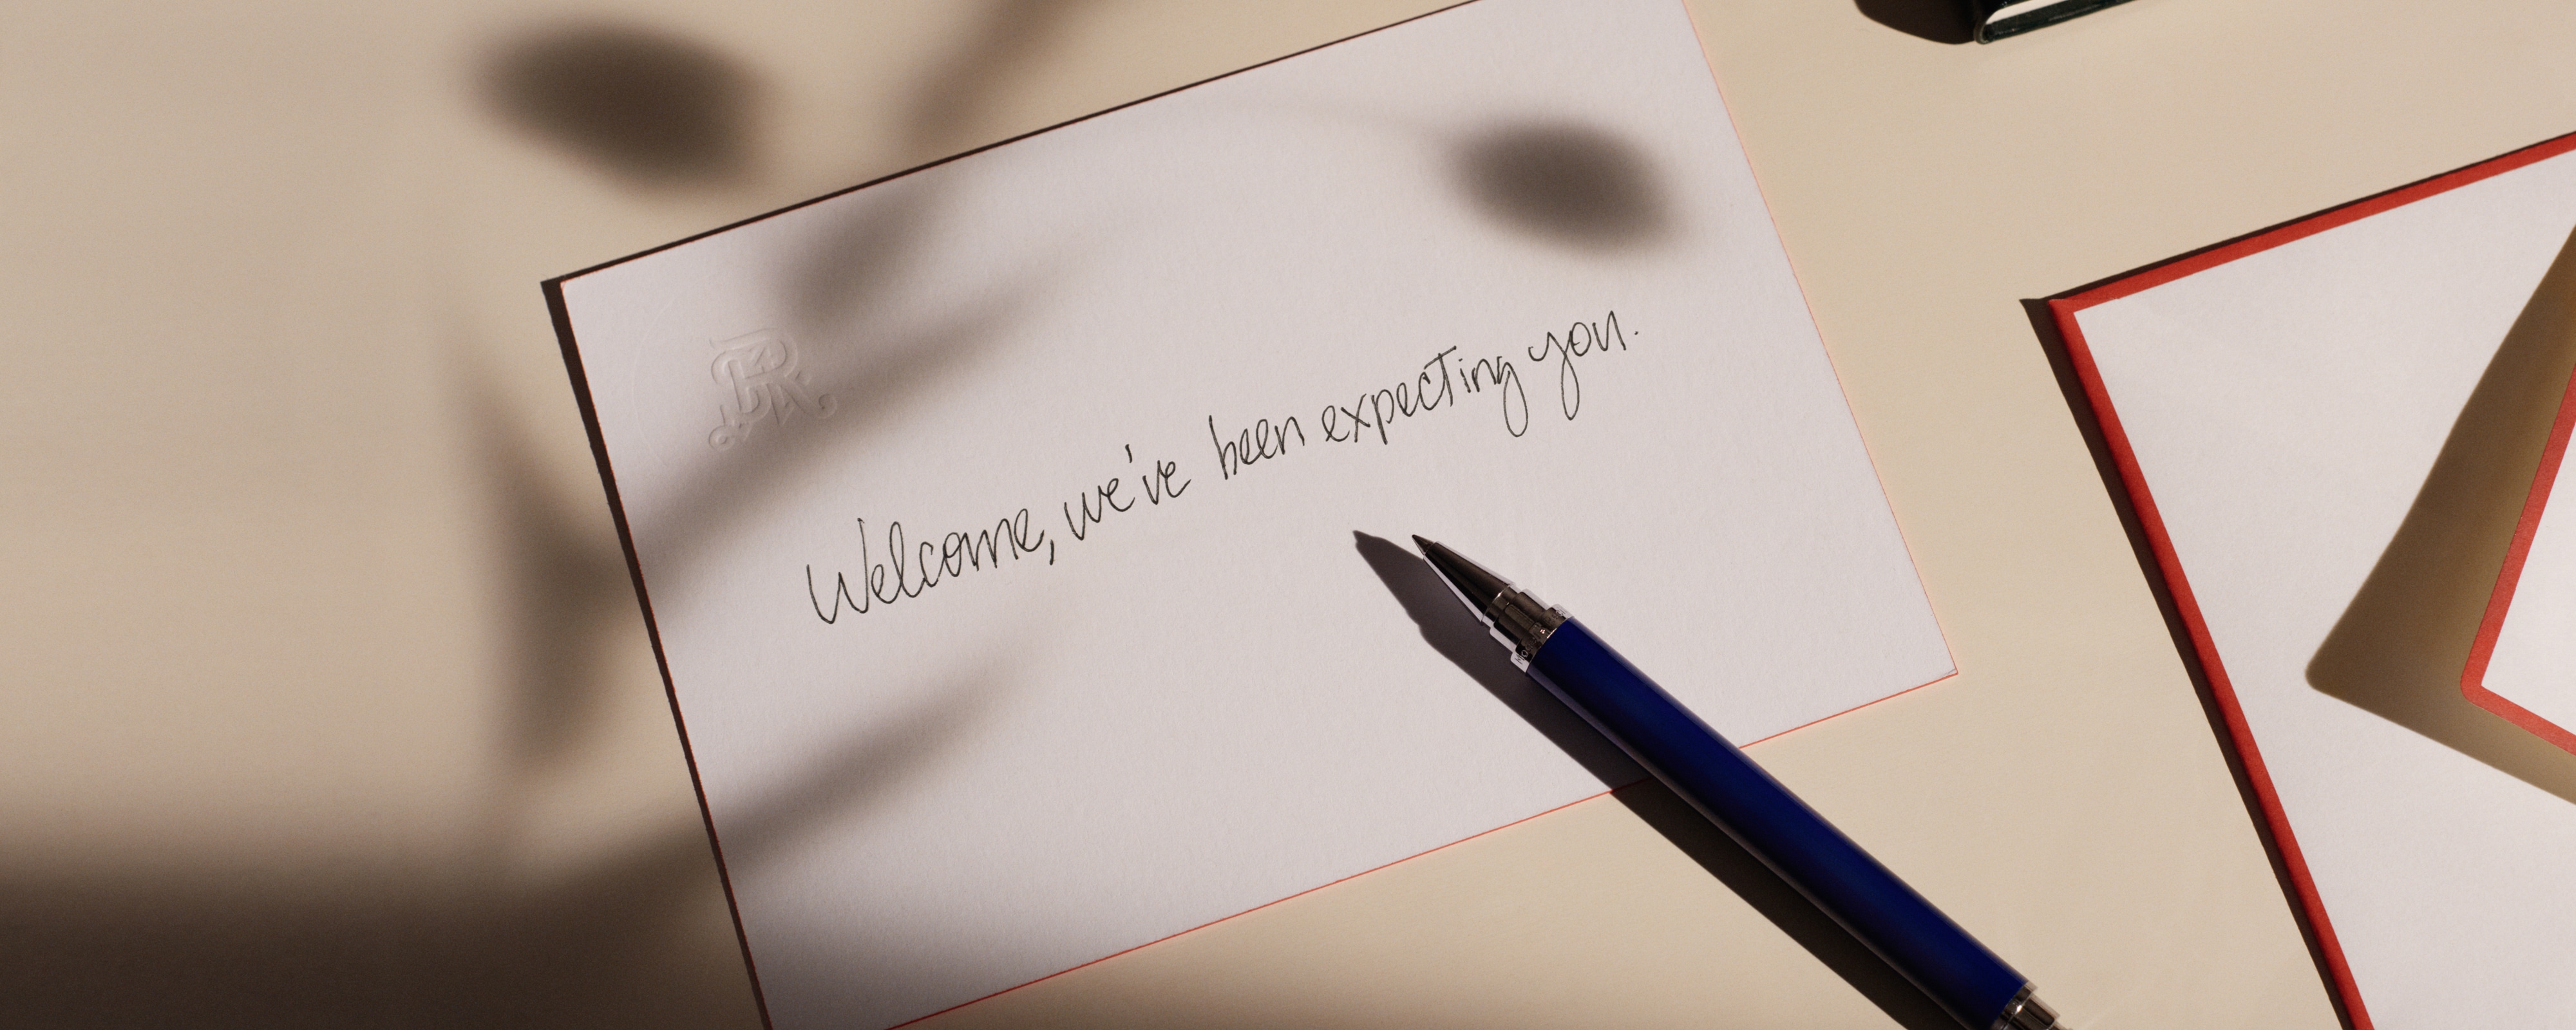 Welcome, we've been expecting you.